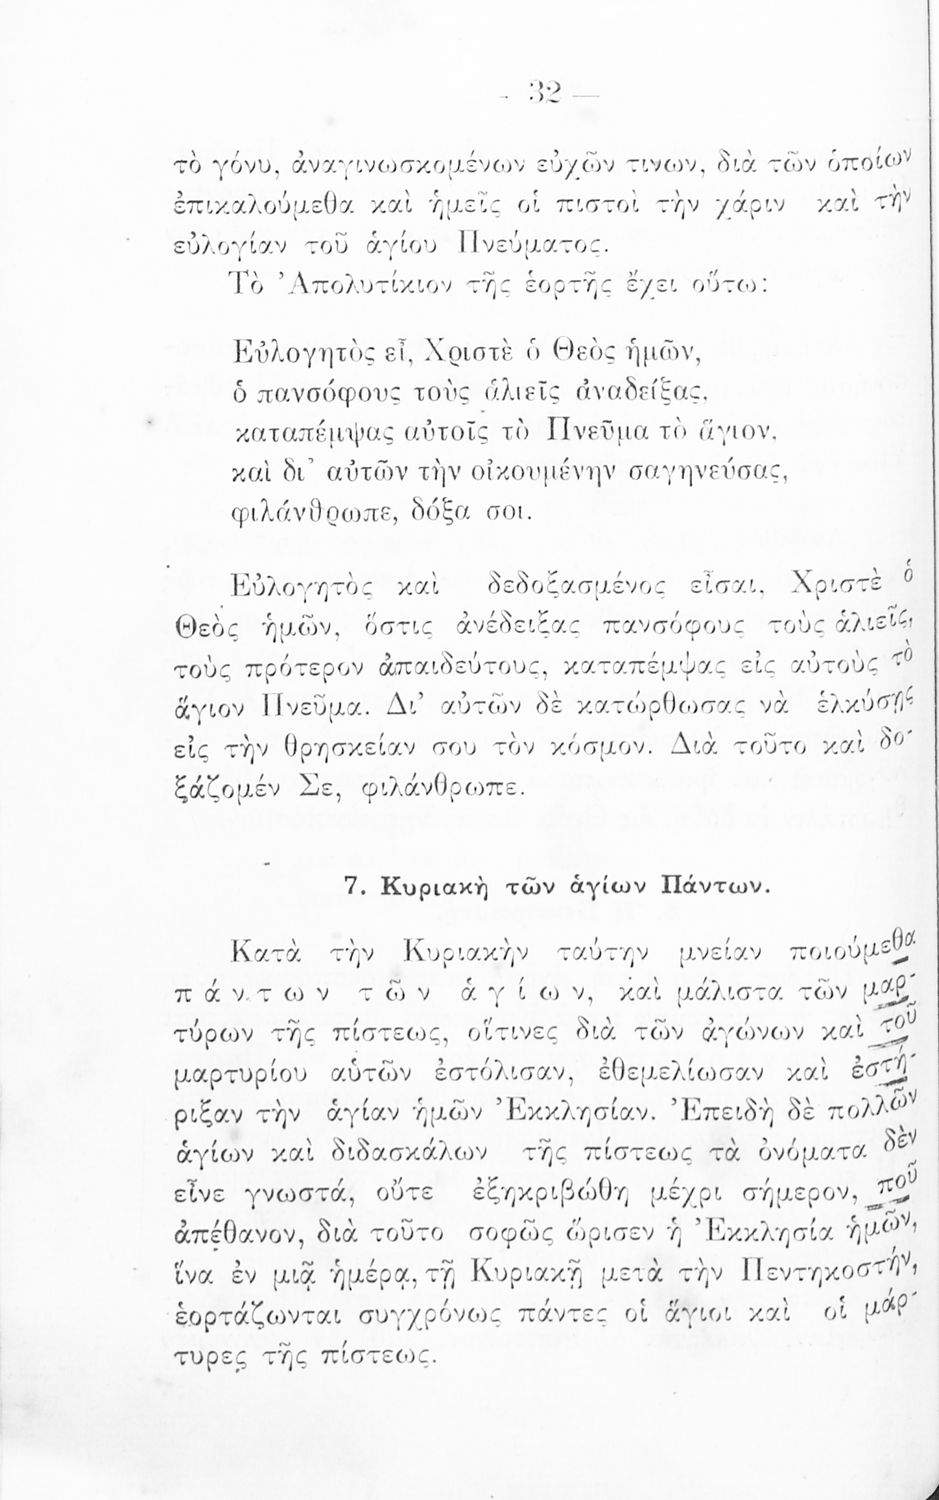 - 32 —
τὸ γόνυ, ἀναγινωσκομένων εὐχῶν τινων, διὰ τῶν ὁποίων
ἐπικαλούμεθα καὶ ἡμεῖς οἱ πιστοὶ τὴν χάριν καὶ τὴν
εὐλογίαν τοῦ ἁγίου Πνεύματος.
Τὸ Ἀπολυτίκιον τῆς ἑορτῆς ἔχει οὕτω:
Εὐλογητὸς εἶ, Χριστὲ ὁ Θεὸς ἡμῶν,
ὁ πανσόφους τοὺς ἁλιεῖς ἀναδείξας,
καταπέμψας αὐτοῖς τὸ Πνεῦμα τὸ ἅγιον,
καὶ δι’ αὐτῶν τὴν οἰκουμένην σαγηνεύσας,
φιλάνθρωπε, δόξα σοι.
Εὐλογητὸς καὶ δεδοξασμένος εἶσαι, Χριστὲ ὁ
Θεὸς ἡμῶν, ὅστις ἀνέδειξας πανσόφους τοὺς ἁλιεῖς,
τοὺς πρότερον ἀπαιδεύτους, καταπέμψας εἰς αὐτοὺς τὸ
ἅγιον Πνεῦμα. Δι’ αὐτῶν δὲ κατώρθωσας νὰ ἑλκύσῃς
εἰς τὴν θρησκείαν σου τὸν κόσμον. Διὰ τοῦτο καὶ δο-
ξάζομέν Σε, φιλάνθρωπε.
7. Κυριακὴ τῶν ἁγίων Πάντων.
Κατὰ τὴν Κυριακὴν ταύτην μνείαν ποιούμεθα
πάντων τῶν ἁγίων, καὶ μάλιστα τῶν μαρ-
τύρων τῆς πίστεως, οἵτινες διὰ τῶν ἀγώνων καὶ τοῦ
μαρτυρίου αὑτῶν ἐστόλισαν, ἐθεμελίωσαν καὶ ἐστή-
ριξαν τὴν ἁγίαν ἡμῶν Ἐκκλησίαν. Ἐπειδὴ δὲ πολλῶν
ἁγίων καὶ διδασκάλων τῆς πίστεως τὰ ὀνόματα δὲν
εἶνε γνωστά, οὔτε ἐξηκριβώθη μέχρι σήμερον, ποῦ
ἀπέθανον, διὰ τοῦτο σοφῶς ὥρισεν ἡ Ἐκκλησία ἡμῶν,
ἵνα ἐν μιᾷ ἡμέρᾳ, τῇ Κυριακῇ μετὰ τὴν Πεντηκοστήν,
ἑορτάζωνται συγχρόνως πάντες οἱ ἅγιοι καὶ οἱ μάρ-
τυρες τῆς πίστεως.